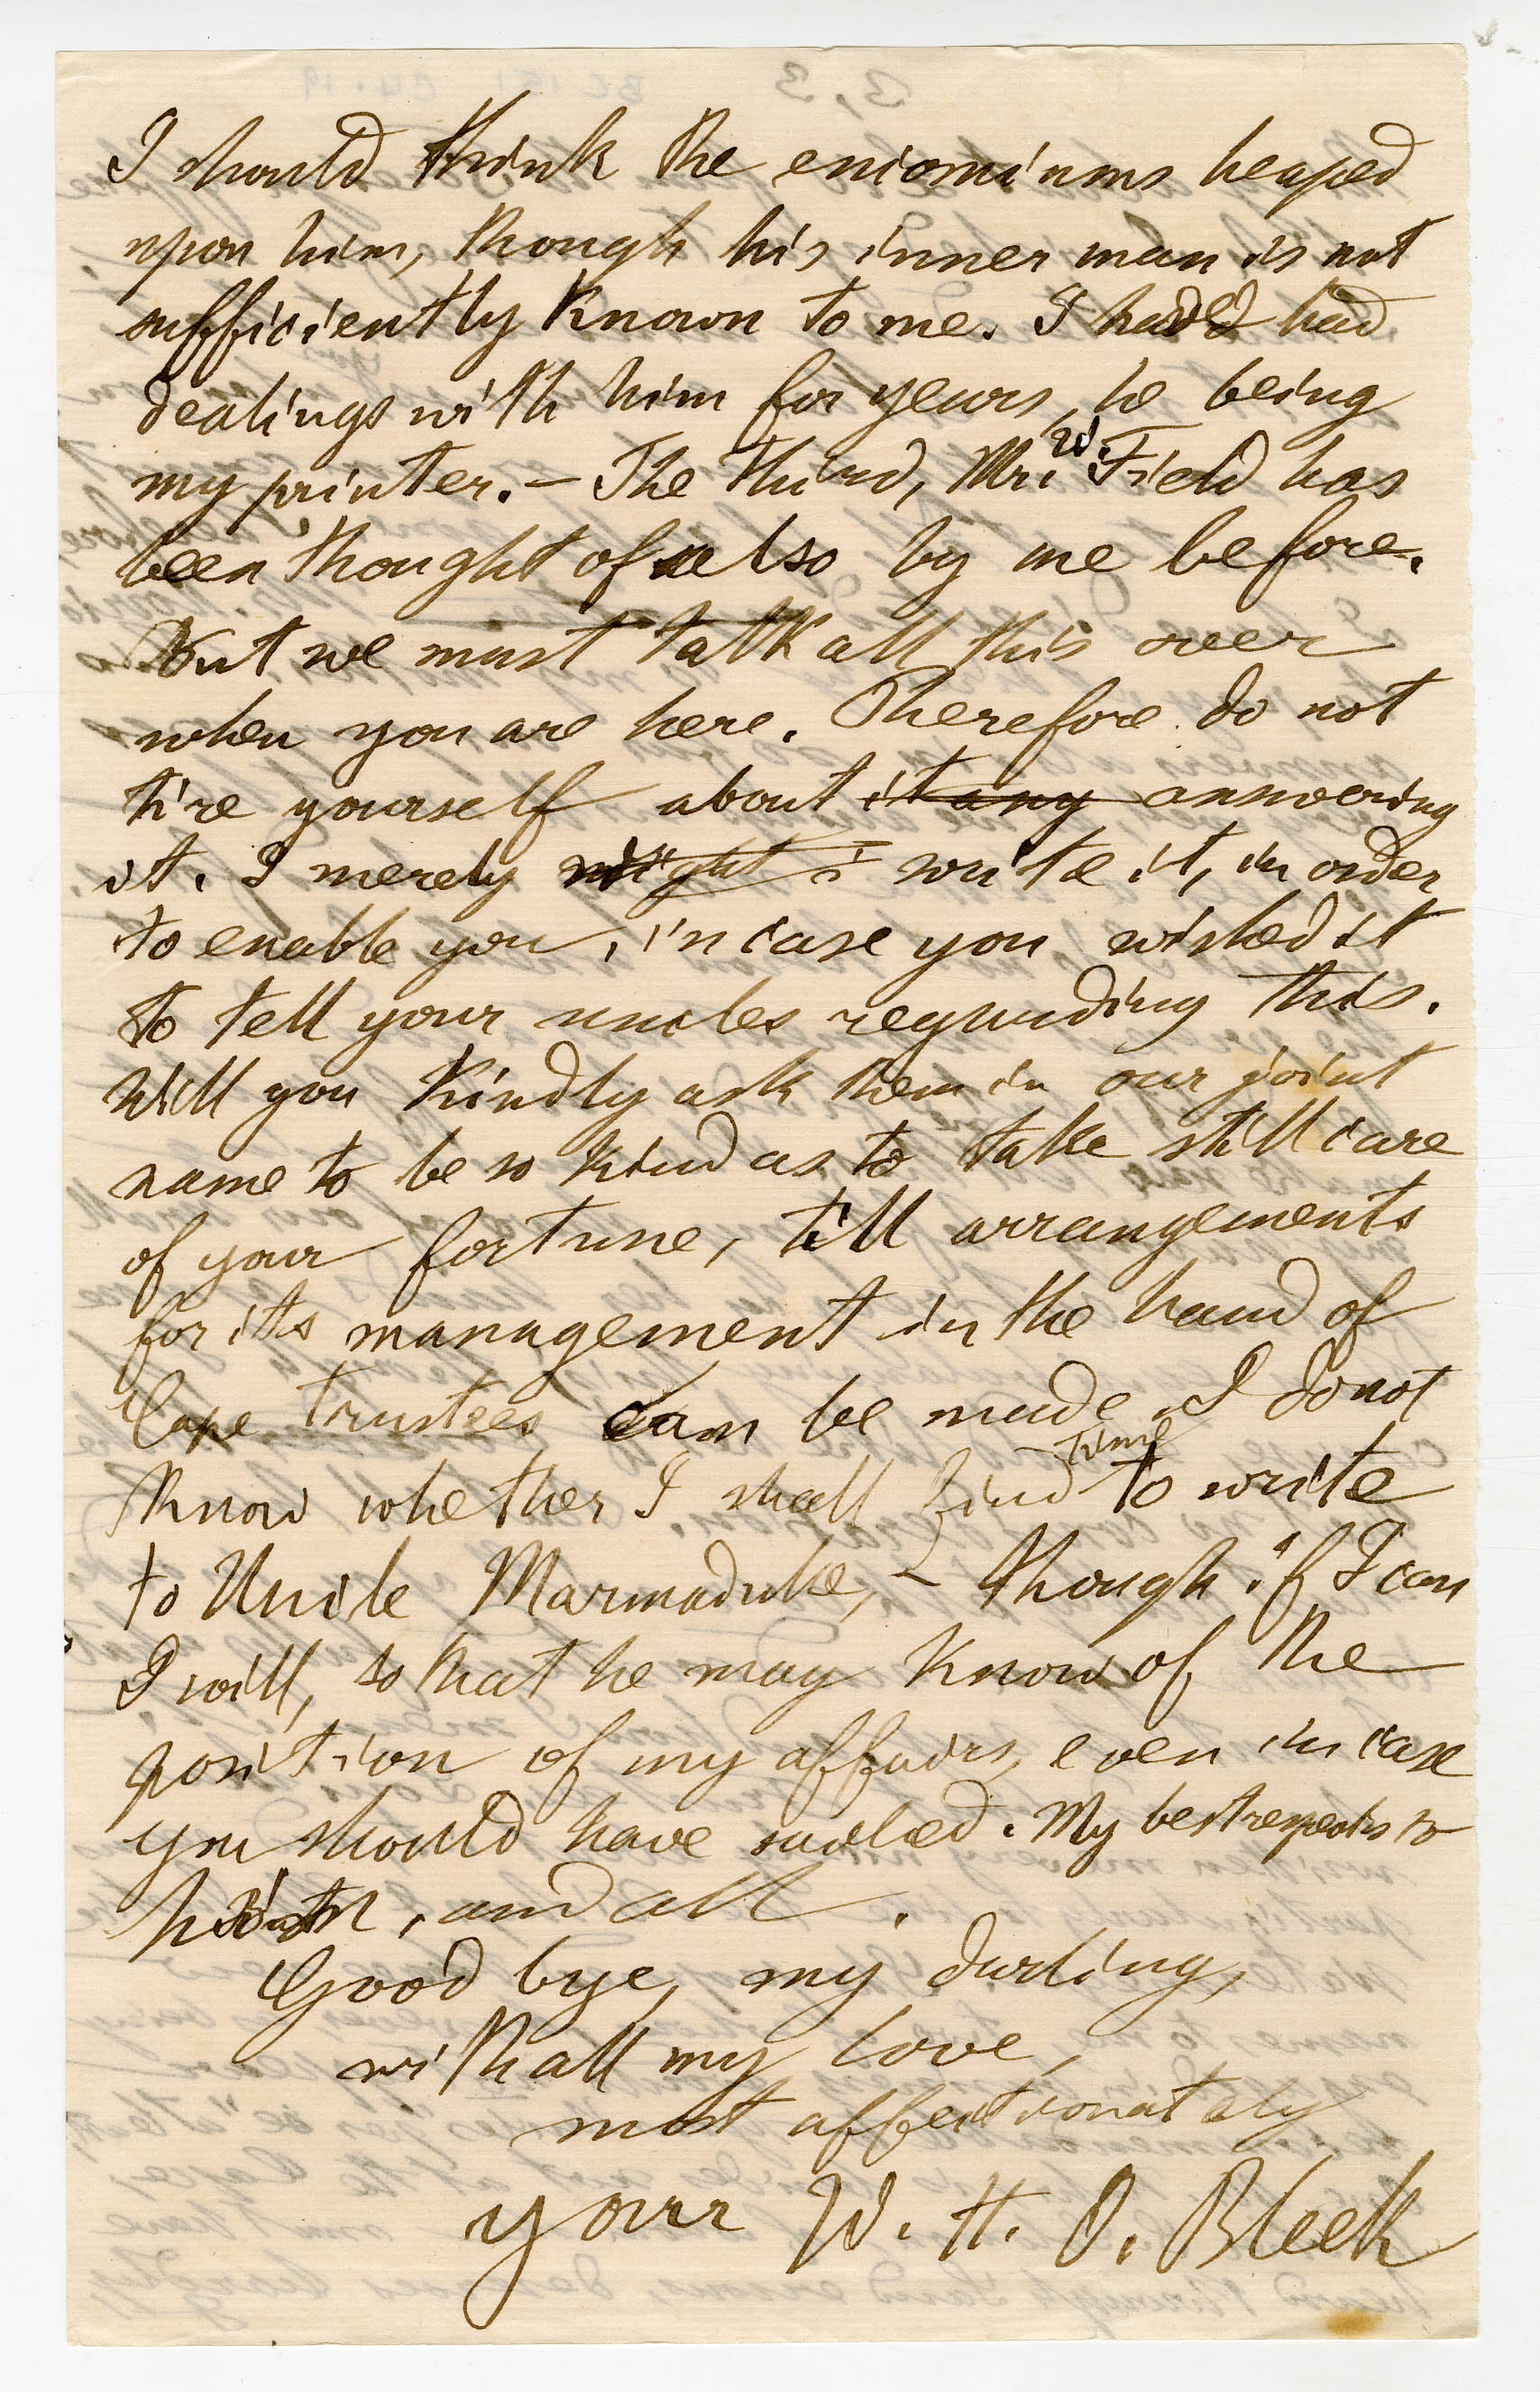 I should think the eniominiums heaped
upon him, though his inner man is not
sufficiently known to me. I had had
dealings with him for years, he being
my printer. – The third, Mr. W. Field has
been thought of also by me before.
But we must talk all this over
when you are here. Therefore do not
tire yourself about it any answering
it. I merely might i write it, in order
to enable you, in case you wished it
to tell your uncles regarding this.
Will you kindly ask them in our joint
name to be so kind as to take still care
of your fortune, till arrangements
for its management in the hand of
Cape trustees can be made. I do not
know whether I shall find time to write
to Uncle Marmaduke, – though if I can
I will, so that he may know of the
position of my affairs, even in case
you should have sailed. My best respects to
, and all.
Good bye, my darling,
with all my love,
most affectionately
your W. H. I. Bleek